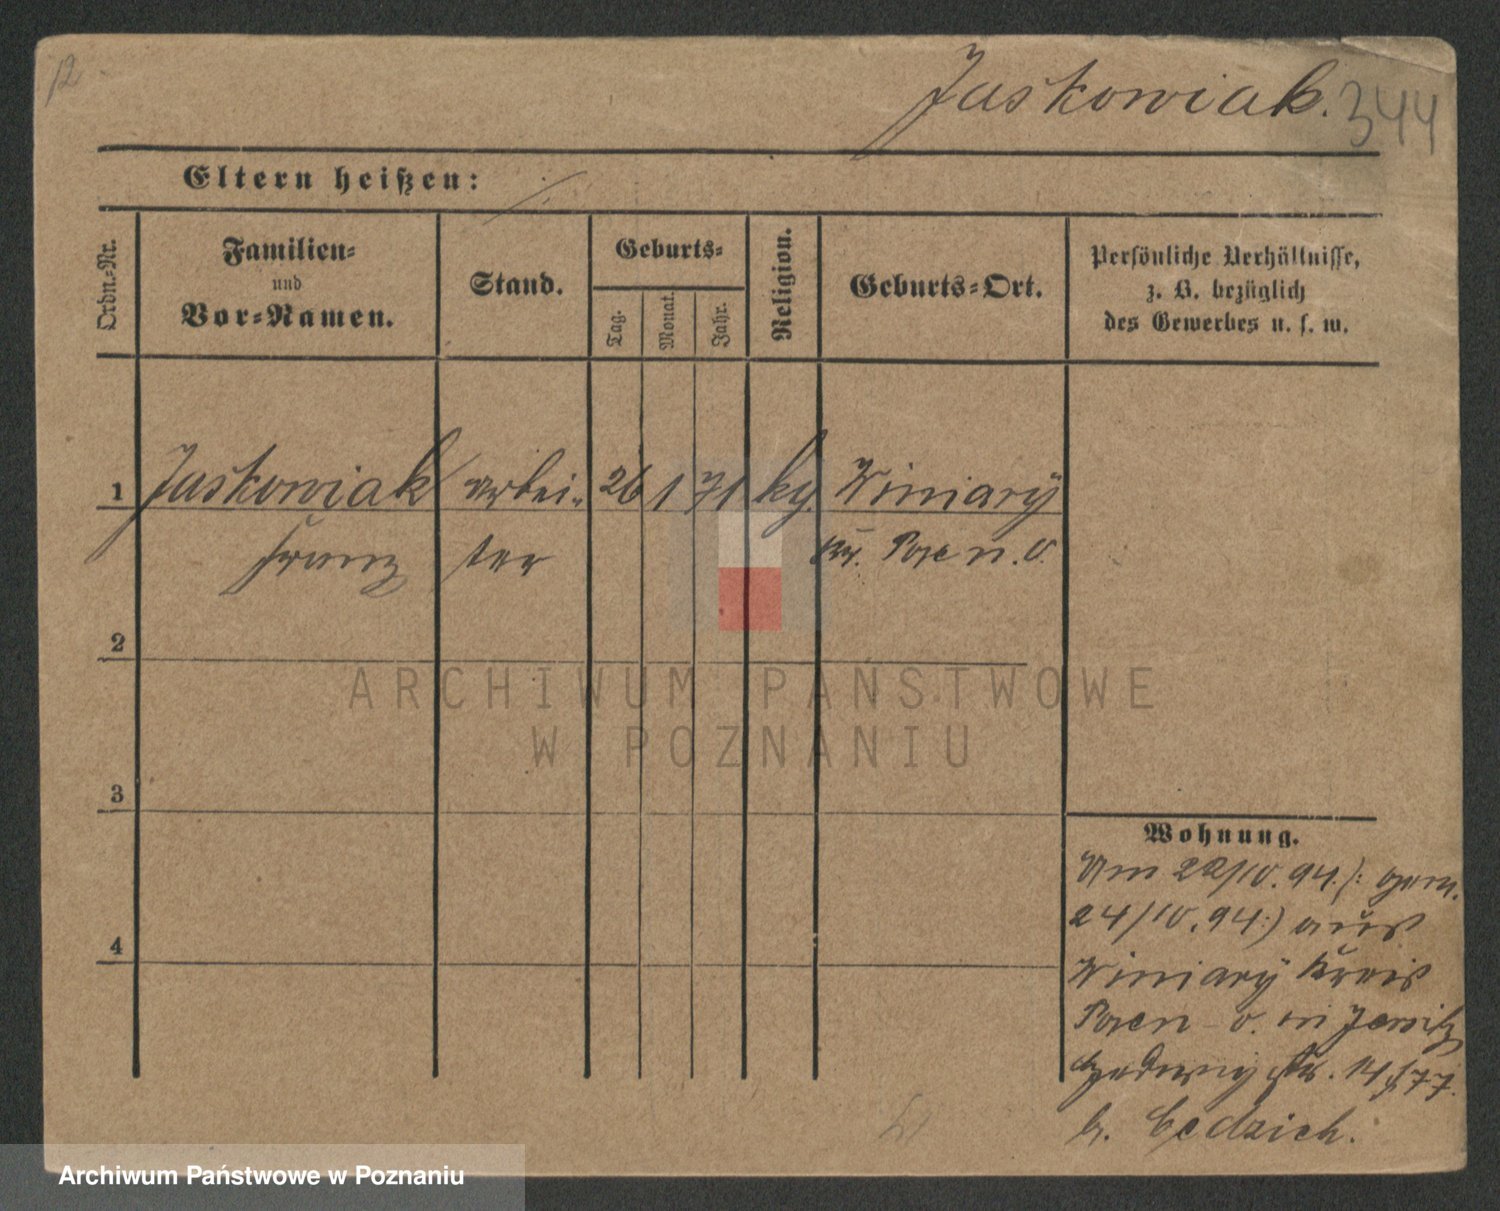 12
Jaskowiak. 344
Eltern heißen:
Ordn.-Nr.
Familien-
und
Vor-Namen.
Stand.
Geburts-
Tag.
Monat.
Jahr.
Religion.
Geburts-Ort.
Persönliche Verhältnisse,
z. B. bezüglich
des Gewerbes u. s. w.
1 Jaskowiak arbei- 26 1 71 kg. Winiary
Franz ter Kr. Posen. O.
2
3
4
Wohnung.
Am 22/10.94. (: gem.
24/10.94 :) aus
Winiary Kreis
Posen O. in Jersitz
Hedwig str. 14
b. Cedzich.
ARCHIWUM PAŃSTWOWE
W POZNANIU
Archiwum Państwowe w Poznaniu